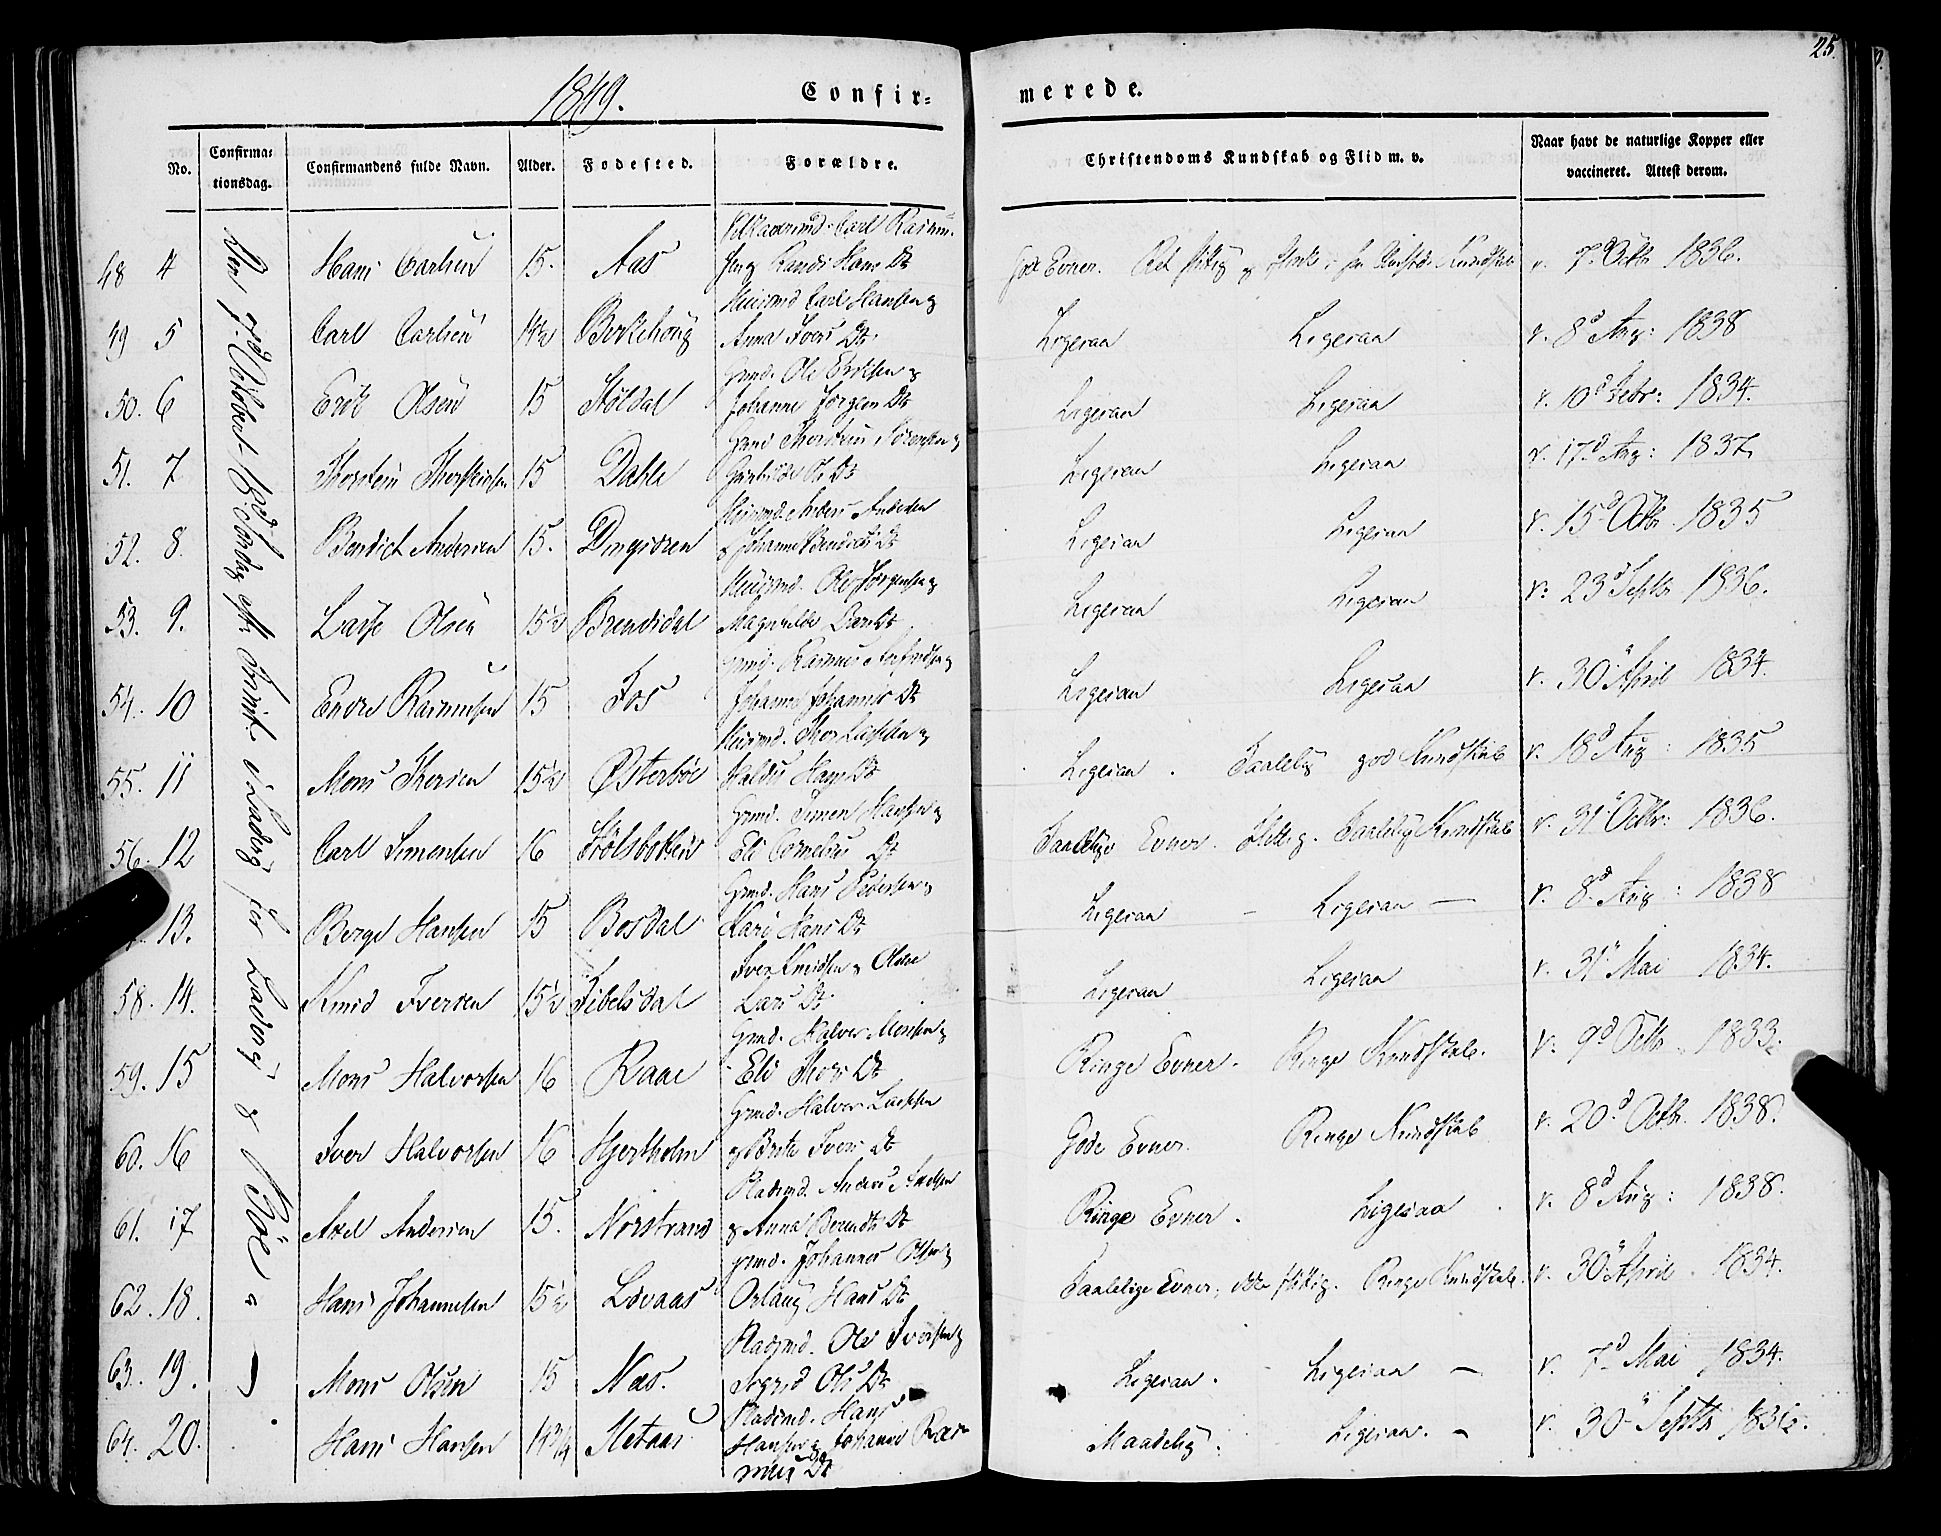 25.
1849.
Confir=
merede.
No.
Confirma=
tionsdag.
Confirmandens fulde Navn.
Alder.
Fodested.
Forældre.
Christendoms Kundskab og Flid m. v.
Naar havt de naturlige Kopper eller
vaccineret. Attest derom.
Den 7d October 18d Søndag efter Trinit. i Ladvig for Ladvig &
48 4 Hans Carlsen 15. Aas Carl Rasmus= Randi Hans Dt Gode Evner. v. 7d Octbr 1836.
49 5 Carl Carlsen 14½ Berkehoug Huusmd Carl Hansen &
Anna Ivers Dt Ligesaa Ligesaa v. 8d Aug: 1838
50. 6 Erik Olsen 15 Støldal Grmd. Ole Eriksen &
Johanne Jørgens Dt Ligesaa Ligesaa v. 10d Febr: 1834.
51. 7 Thorstein Thorsteinsen 15 Dahle Grmd Thorstein Sørensen &
Ols Dt Ligesaa Ligesaa v. 17d Aug: 1837.
52. 8. Bendict Andersen 15. Dingisøen Huusmd. Anders Andersen
& Johanne Bendicts Dt Ligesaa Ligesaa v. 15d Octbr. 1835
53. 9. Lasse Olsen 15½ Brendsdal Huusmd. Ole Jørgensen &
Magnhilde Dt Ligesaa Ligesaa v: 23d Septbr 1836.
54. 10 Endre Rasmussen 15 Fos Grmd. Rasmus &
Johanne Johannes Dt Ligesaa Ligesaa v. 30d April 1834.
55. 11 Mons Thorsen 15½ Østerbøe Huusmd. Thor Lassesen &
Hans Dt Ligesaa. Taalelig god Kundskab v. 18d Aug: 1835
56. 12 Carl Simonsen 16 Stølsbotten Grmd. Simon Hansen &
Eli Cornelius Dt Taalelige Evner. Flittig. Taalelig Kundskab v. 31d Octbr: 1836.
13. Berge Hansen 15 Bosdal Grmd. Hans Pedersen &
Kari Hans Dt Ligesaa - Ligesaa - v. 8d Aug: 1838
58. 14. Knud Iversen 15½ Iver Knudsen & Oline
Lars Dt Ligesaa Ligesaa v. 31d Mai 1834.
59. 15 Mons Halvorsen 16 Raae Grmd. Halvor Monsen &
Eli Thors Dt Ringe Evner. Ringe Kundskab. v. 9d Octbr. 1833.
60. 16 Iver Halvorsen 16 Hjertholm Grmd. Halvor Lassesen
& Brite Ivers Dt Gode Evner. Ringe Kundskab v. 20d Octbr. 1838.
61. 17 Axel Andersen 15. Norstrand Pladsmd. Anders Axelsen
& Anna Berndts Dt Ringe Evner. Ligesaa. v. 8d Aug: 1838.
62. 18. Hans Johannesen 15½ Løvaas Grmd. Johannes Olsen &
Orlaug Hans Dt Taalelige Evner, ikke flittig. Ringe Kundskab. v. 30d April 1834.
63. 19. Mons Olsen 15 Næs. Pladsmd. Ole Iversen &
Sigrid Ols Dt Ligesaa. - Ligesaa - v. 7d Mai 1834.
64. 20. Hans Hansen 14¾ Pladsmd. Hans
Hansen & Johanne Ras=
mus Dt Maadelig. Ligesaa. - v. 30d Septbr 1836.